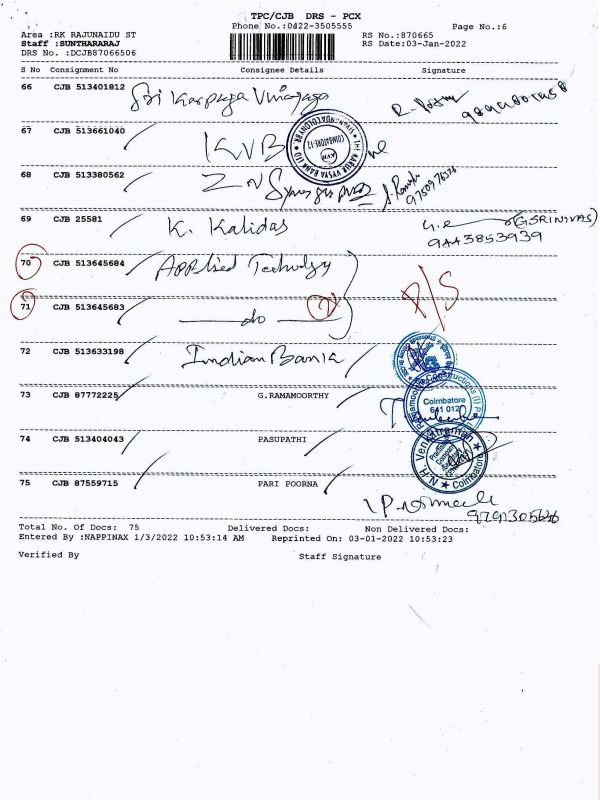 TPC/CJB DRS - PCX
Phone No.:0422-3505555 Page No.:6
Area :RK RAJUNAIDU ST RS No.:870665
Staff :SUNTHARARAJ RS Date:03-Jan-2022
DRS No. :DCJB87066506
S No Consignment No Consignee Details Signature
66 CJB 513401812 Sri Karpaga Vinayaga
67 CJB 513661040 KVB
THE KARUR VYSYA BANK LTD COIMBATORE-12 KVB
68 CJB 513380562
69 CJB 25581 K. Kalidas (G.SRINIVAS)
9443853939
70 CJB 513645684 Applied
71 CJB 513645683 do 2 P/S
72 CJB 513633198 Indian Bank
73 CJB 87772225 G.RAMAMOORTHY
Ramamoorthy Constructions (I) Coimbatore 641 012
74 CJB 513404043 PASUPATHI
N.H. Venkatraman Practising Company Secretary Coimbatore
75 CJB 87559715 PARI POORNA
Total No. of Docs: 75 Delivered Docs: Non Delivered Docs:
Entered By :NAPPINAX 1/3/2022 10:53:14 AM Reprinted On: 03-01-2022 10:53:23
Verified By Staff Signature